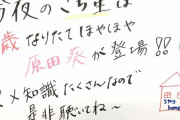 今夜のこち星は
歳 なりたてほやほや
原田葵が登場!!
メ知識たくさんなので
是非聴いてね〜
stay
home